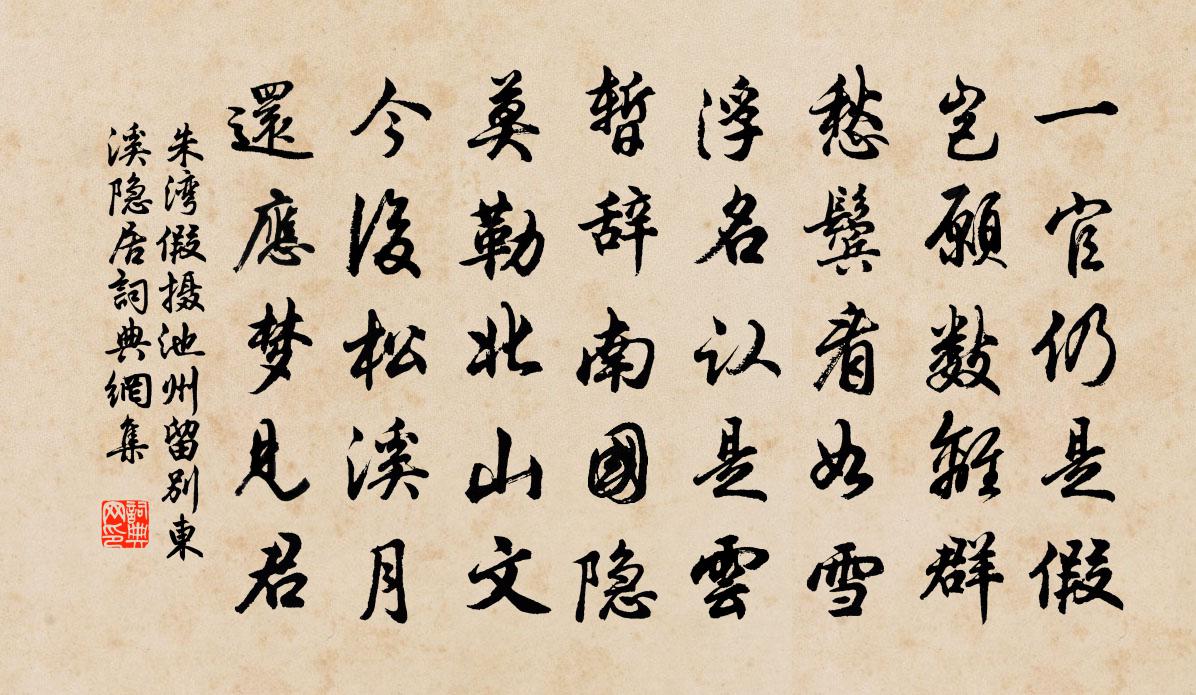 一官仍是假
豈願數離群
愁鬢看如雪
浮名认是雲
暫辞南國隐
莫勒北山文
今後松溪月
還應梦見君
朱湾假摄池州留别東
溪隐居詞典網集
詞典
网印